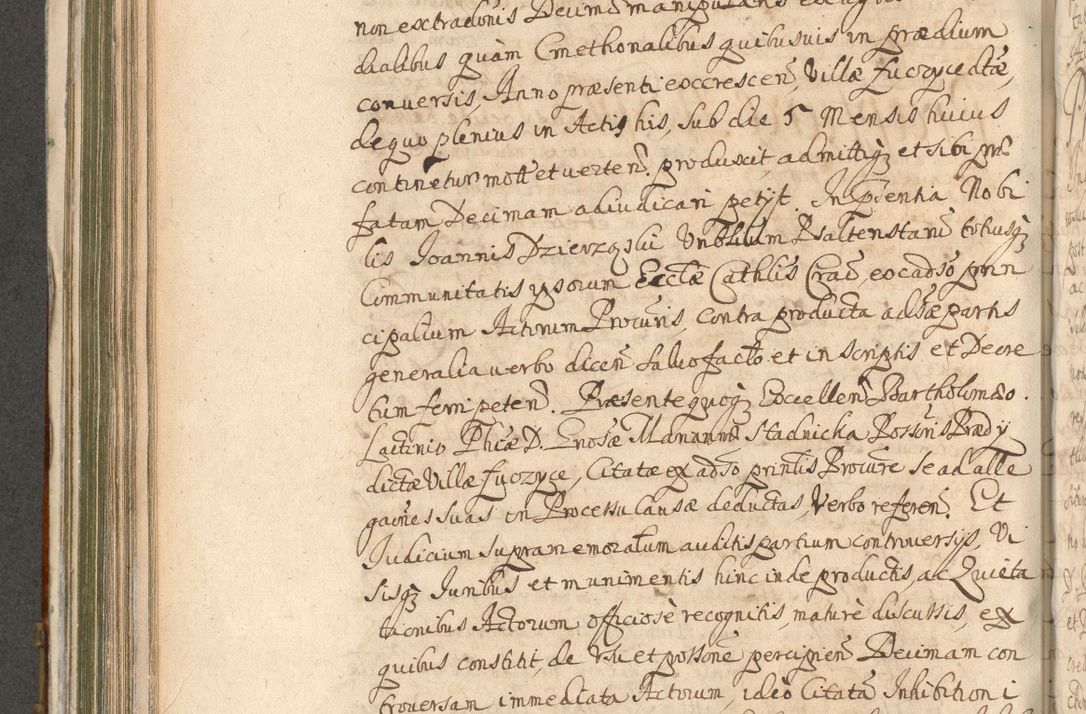 non extradonis Decimæ manipularis ex agris
dialibus quàm Cmethonalibus quibusuis in prædium
conversis, Anno præsenti excrescen, Villæ Łuczyce dtæ,
de quo plenius in Actis his, sub die 5 Mensis huius
continetur mott et verten. produxit, admittiqz et sibi præ
fatam Decimam adiudicari petÿt. In pñtia Nobi
lis Joannis Dzierzqski Vnblium Psaltenstarũ totiusqz
Communitatis ipsorum Ecclæ Cathlis Crac, ex adso prin
cipalium Actorum Procuris, contra producta adsæ partis
generalia verbo dicen saluo facto et in scriptis et Decre
tum ferri peten. Præsente quoqz Excellen Bartholomæo
Lactinio Phiæ D. Gnosæ Mariannæ Stadnicka Possoris Prædÿ
dictæ Villæ Łuczyce, Citatæ ex adso prinlis Procure se ad alle
gaones suas in Processu causæ deductas, Verbo referen. Et
Judicium supramemoratum auditis partium controversÿs, Vi
sisqz Juribus et munimentis hinc inde productis, ac Quieta
tionibus Actorum officiosè recognitis, maturè discussis, ex
quibus constitit, de vsu et possone percipien Decimam con
troversam immediata Actorum, ideo Citatã Inhibitioni